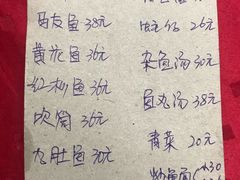 马友鱼 38元
黄花鱼 36元
红杉鱼 36元
吹筒 36元
九肚鱼 30元
26元
杂鱼汤 30元
鱼丸汤 38元
青菜 20元
30